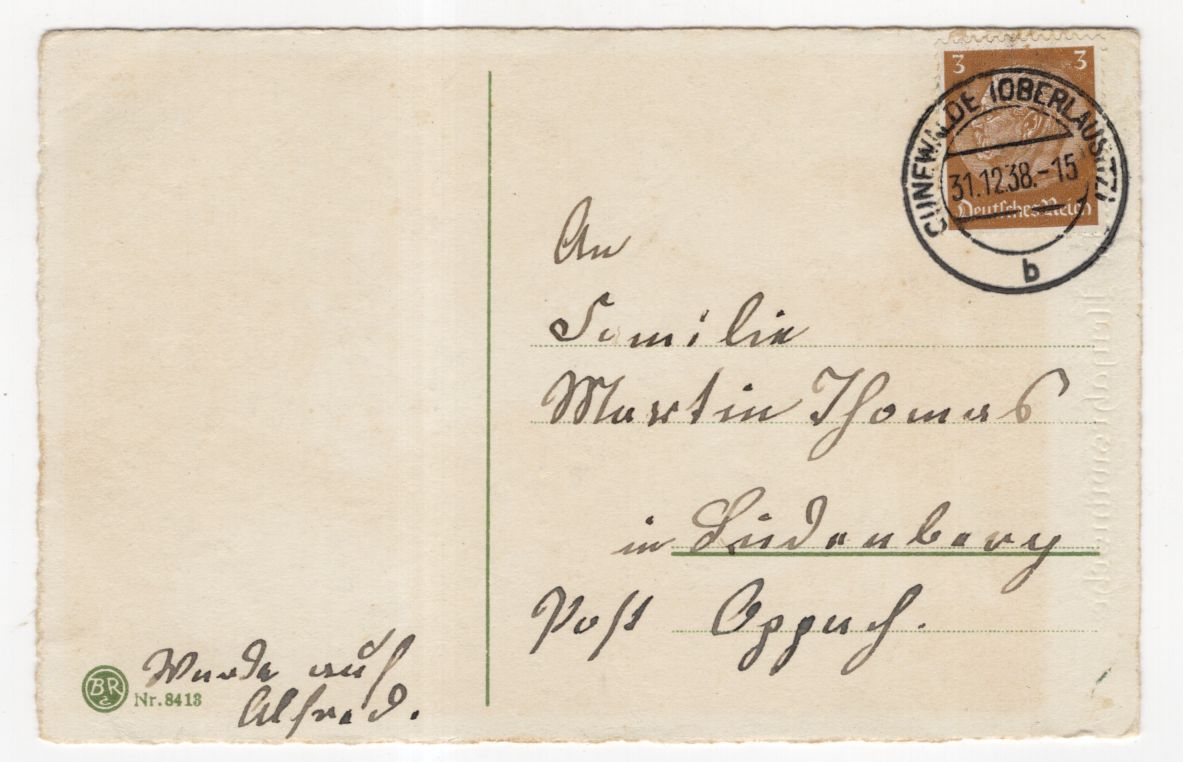 3 3
CUNEWALDE (OBERLAUSITZ)
31.12.38.-15
Deutsches Reich
b
An
Familie
Martin Thomas
in Lindenberg
Post Oppach.
auf
Alfred.
BR
Nr. 8413